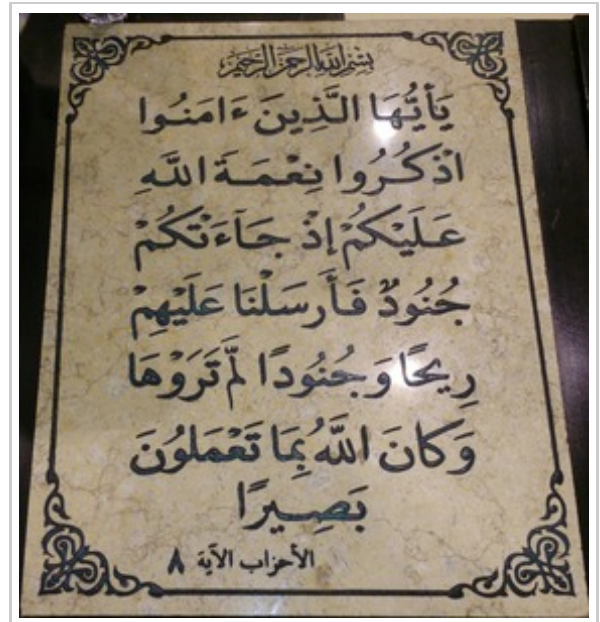 بِسْمِ اللَّهِ الرَّحْمَنِ الرَّحِيمِ
يَٰأَيُّهَا الَّذِينَ ءَامَنُوا
اذْكُرُوا نِعْمَةَ اللَّهِ
عَلَيْكُمْ إِذْ جَآءَتْكُمْ
جُنُودٌ فَأَرْسَلْنَا عَلَيْهِمْ
رِيحًا وَجُنُودًا لَّمْ تَرَوْهَا
وَكَانَ اللَّهُ بِمَا تَعْمَلُونَ
بَصِيرًا
الأحزاب الآية ٨